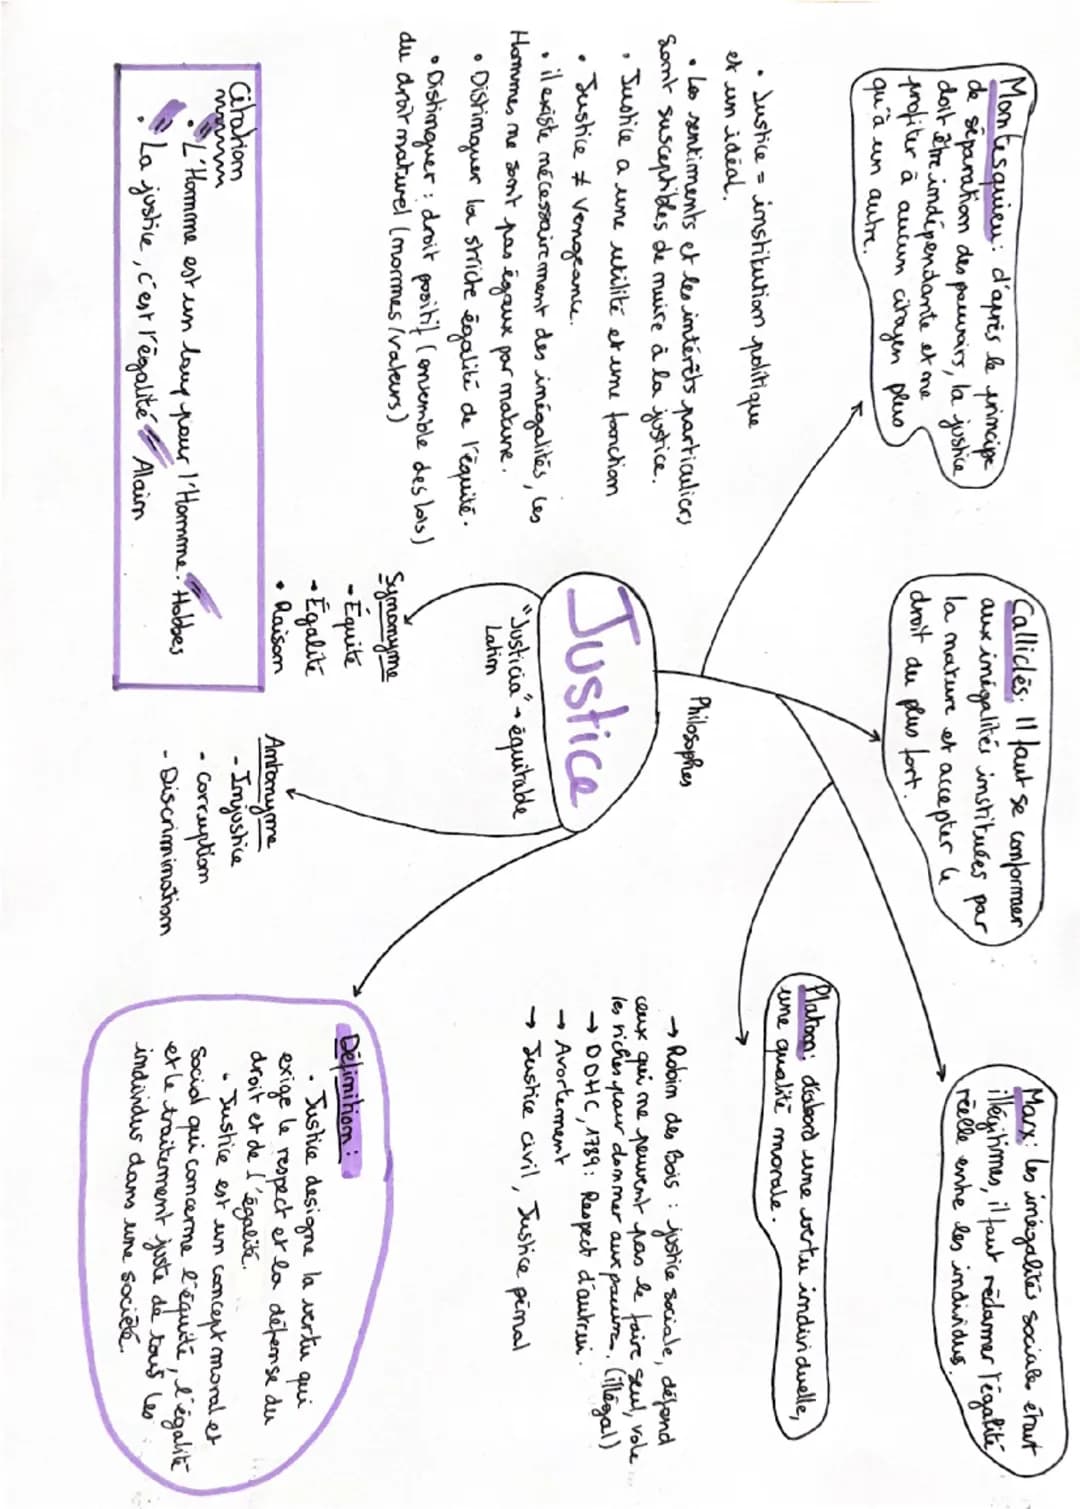 Montesquieu : d'après le principe
de séparation des pouvoirs, la justice
doit être indépendante et ne
profiter à aucun citoyen plus
qu'à un autre.
Calliclès : Il faut se conformer
aux inégalités instituées par
la nature et accepter le
droit du plus fort.
Marx : les inégalités sociales étant
illégitimes, il faut réclamer l'égalité
réelle entre les individus.
Platon : d'abord une vertu individuelle,
une qualité morale.
Philosophes
• Justice = institution politique
et un idéal.
• Les sentiments et les intérêts particuliers
sont susceptibles de nuire à la justice.
• Justice a une utilité et une fonction
• Justice ≠ Vengeance.
• il existe nécessairement des inégalités, les
Hommes ne sont pas égaux par nature.
• Distinguer la stricte égalité de l'équité.
• Distinguer : droit positif (ensemble des lois)
du droit naturel (normes/valeurs)
Justice
"Justicia" → équitable
Latin
→ Robin des Bois : justice sociale, défend
ceux qui ne peuvent pas le faire seul, vole
les riches pour donner aux pauvres. (illégal)
→ DDHC, 1789 : Respect d'autrui.
→ Avortement
→ Justice civil, Justice pénal
Synonyme
- Équité
- Égalité
• Raison
Antonyme
- Injustice
- corruption
- Discrimination
Définition :
• Justice designe la vertu qui
exige le respect et la défense du
droit et de l'égalité.
• Justice est un concept moral et
social qui concerne l'équité, l'égalité
et le traitement juste de tous les
individus dans une société.
Citation
• "L'Homme est un loup pour l'Homme." Hobbes
• "La justice, c'est l'égalité" Alain